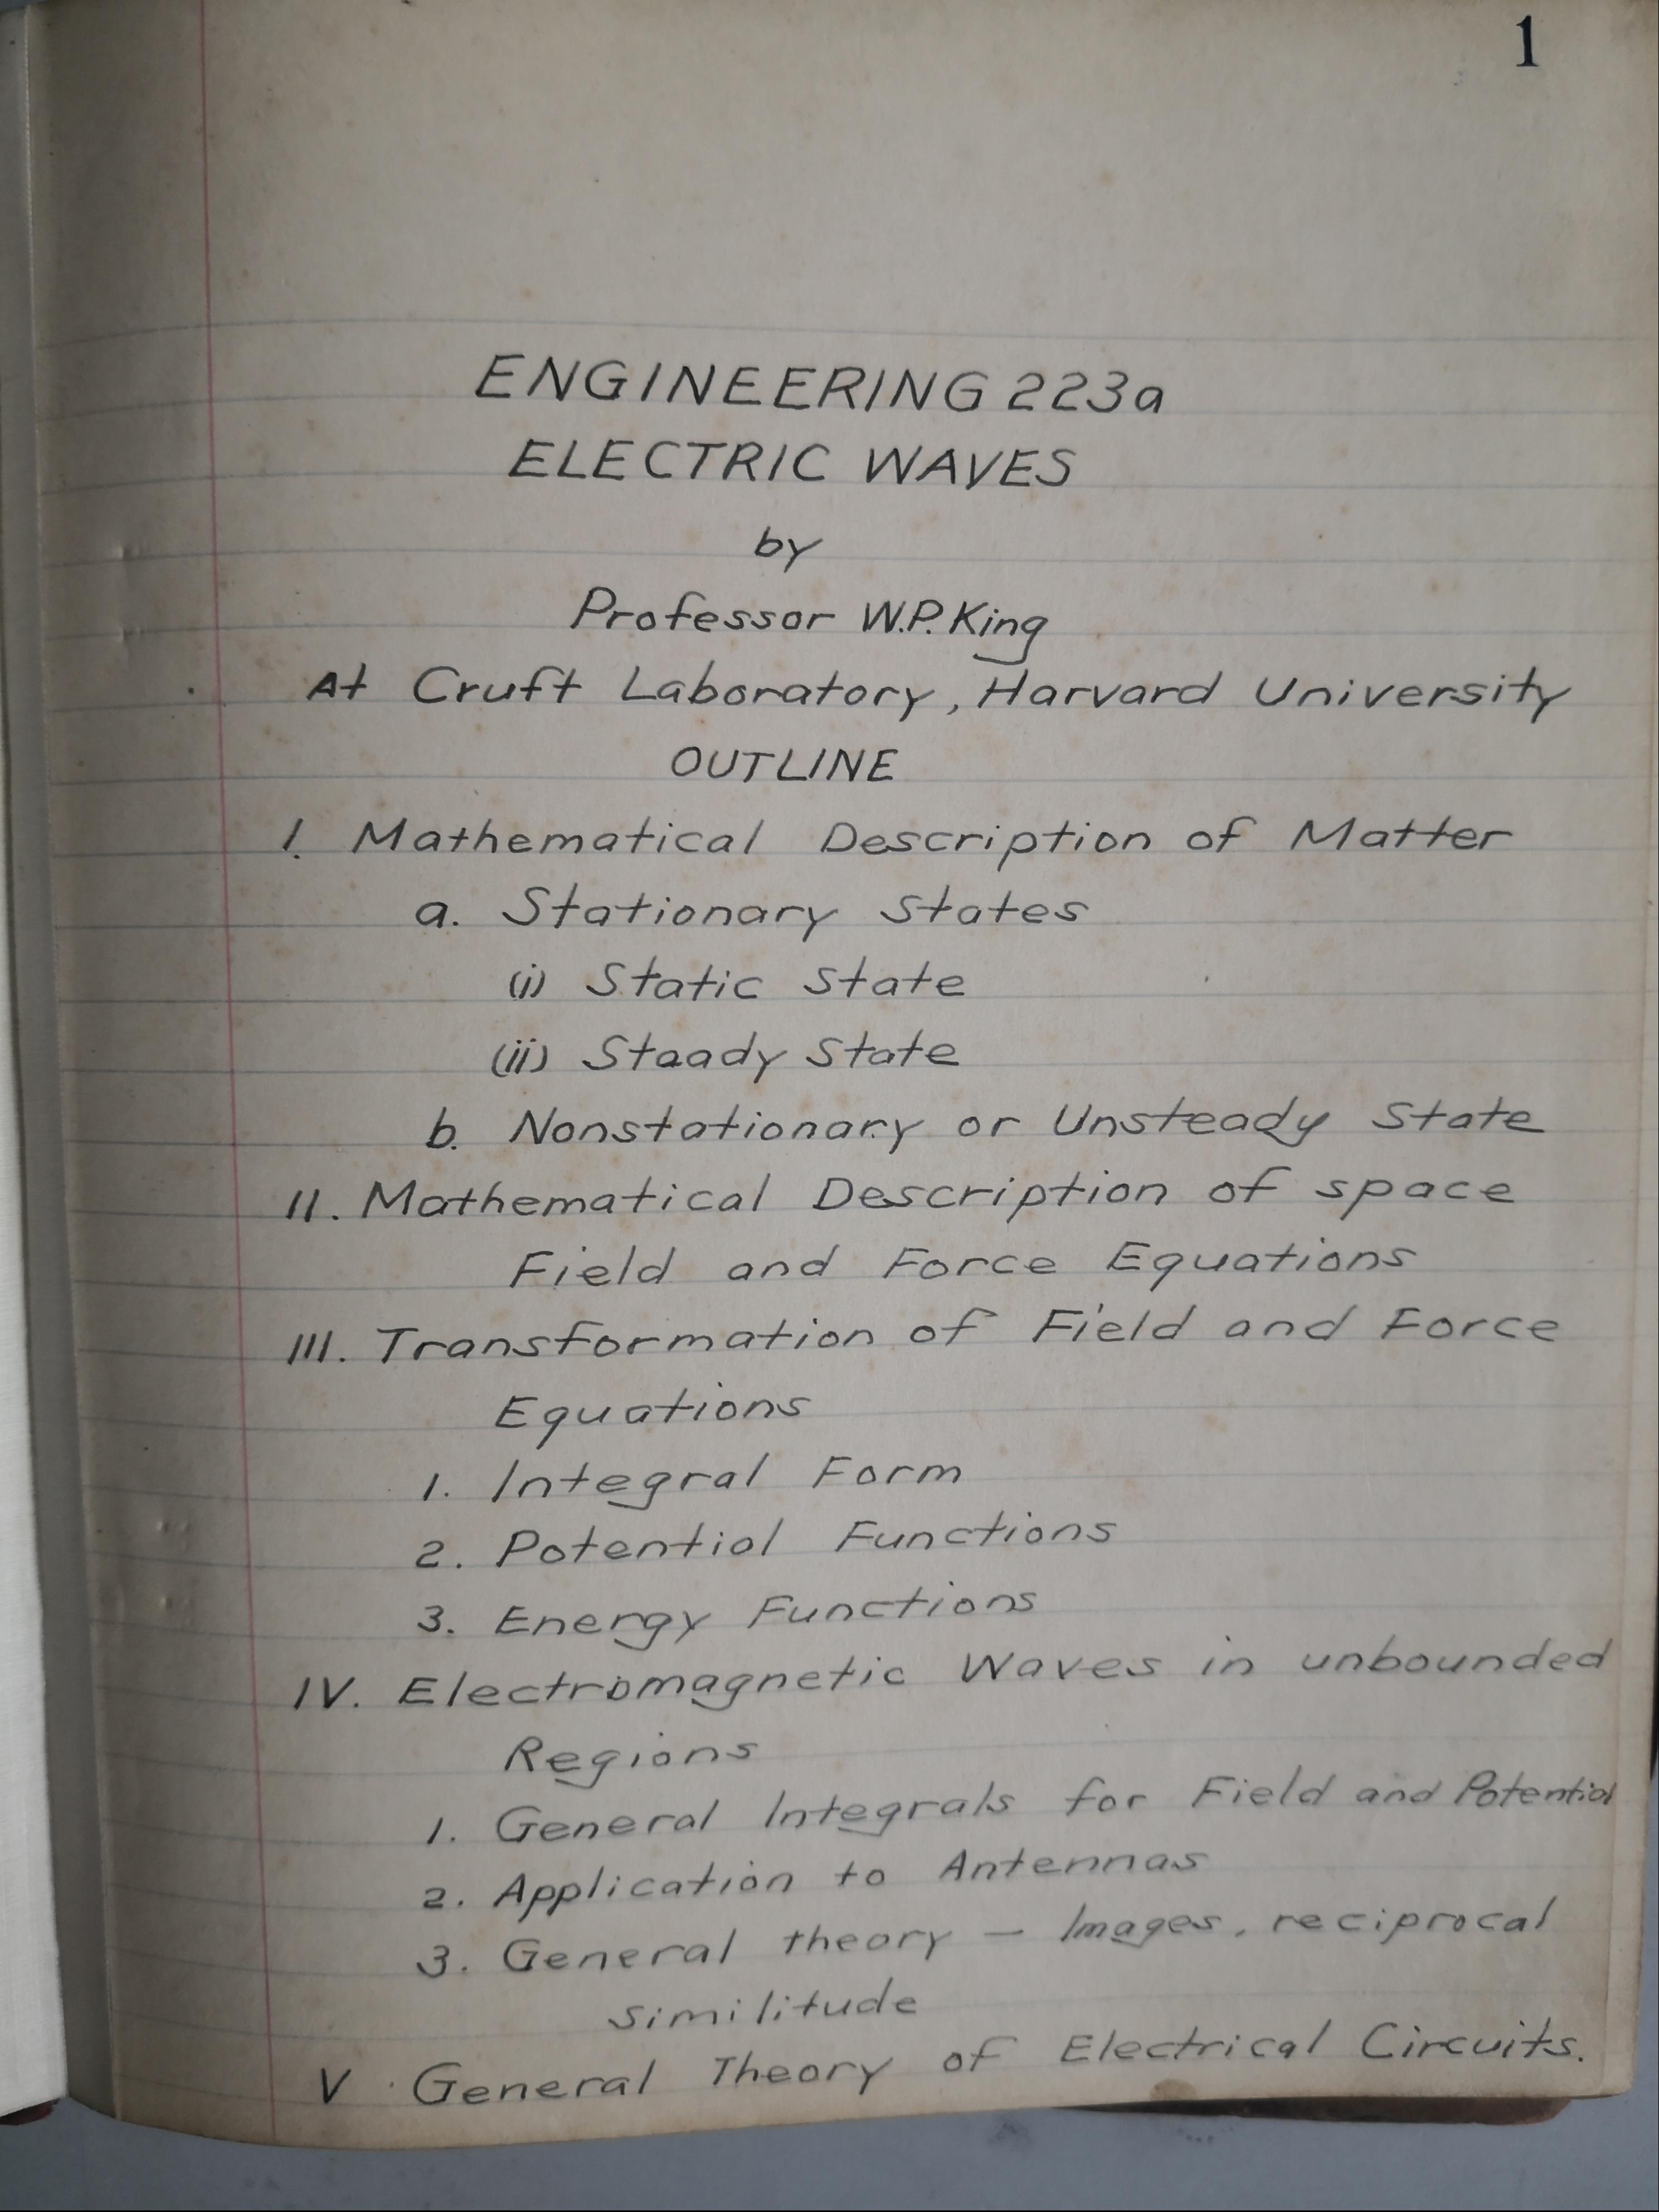 1
ENGINEERING 223a
ELECTRIC WAVES
by
Professor W.P. King
At Cruft Laboratory, Harvard University
OUTLINE
I. Mathematical Description of Matter
a. Stationary States
(i) Static State
(ii) Staady State
b. Nonstationary or Unsteady State
II. Mathematical Description of space
Field and Force Equations
III. Transformation of Field and Force
Equations
1. Integral Form
2. Potential Functions
3. Energy Functions
IV. Electromagnetic Waves in unbounded
Regions
1. General Integrals for Field and Potential
2. Application to Antennas
3. General theory — Images, reciprocal
similitude
V General Theory of Electrical Circuits.